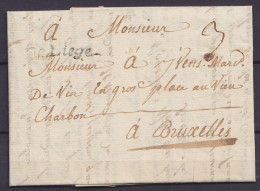 à Monsieur
Liege 3
Monsieur à Stevens Mard.
De Vin En gros place au Vieu
Charbon
à Bruxelles